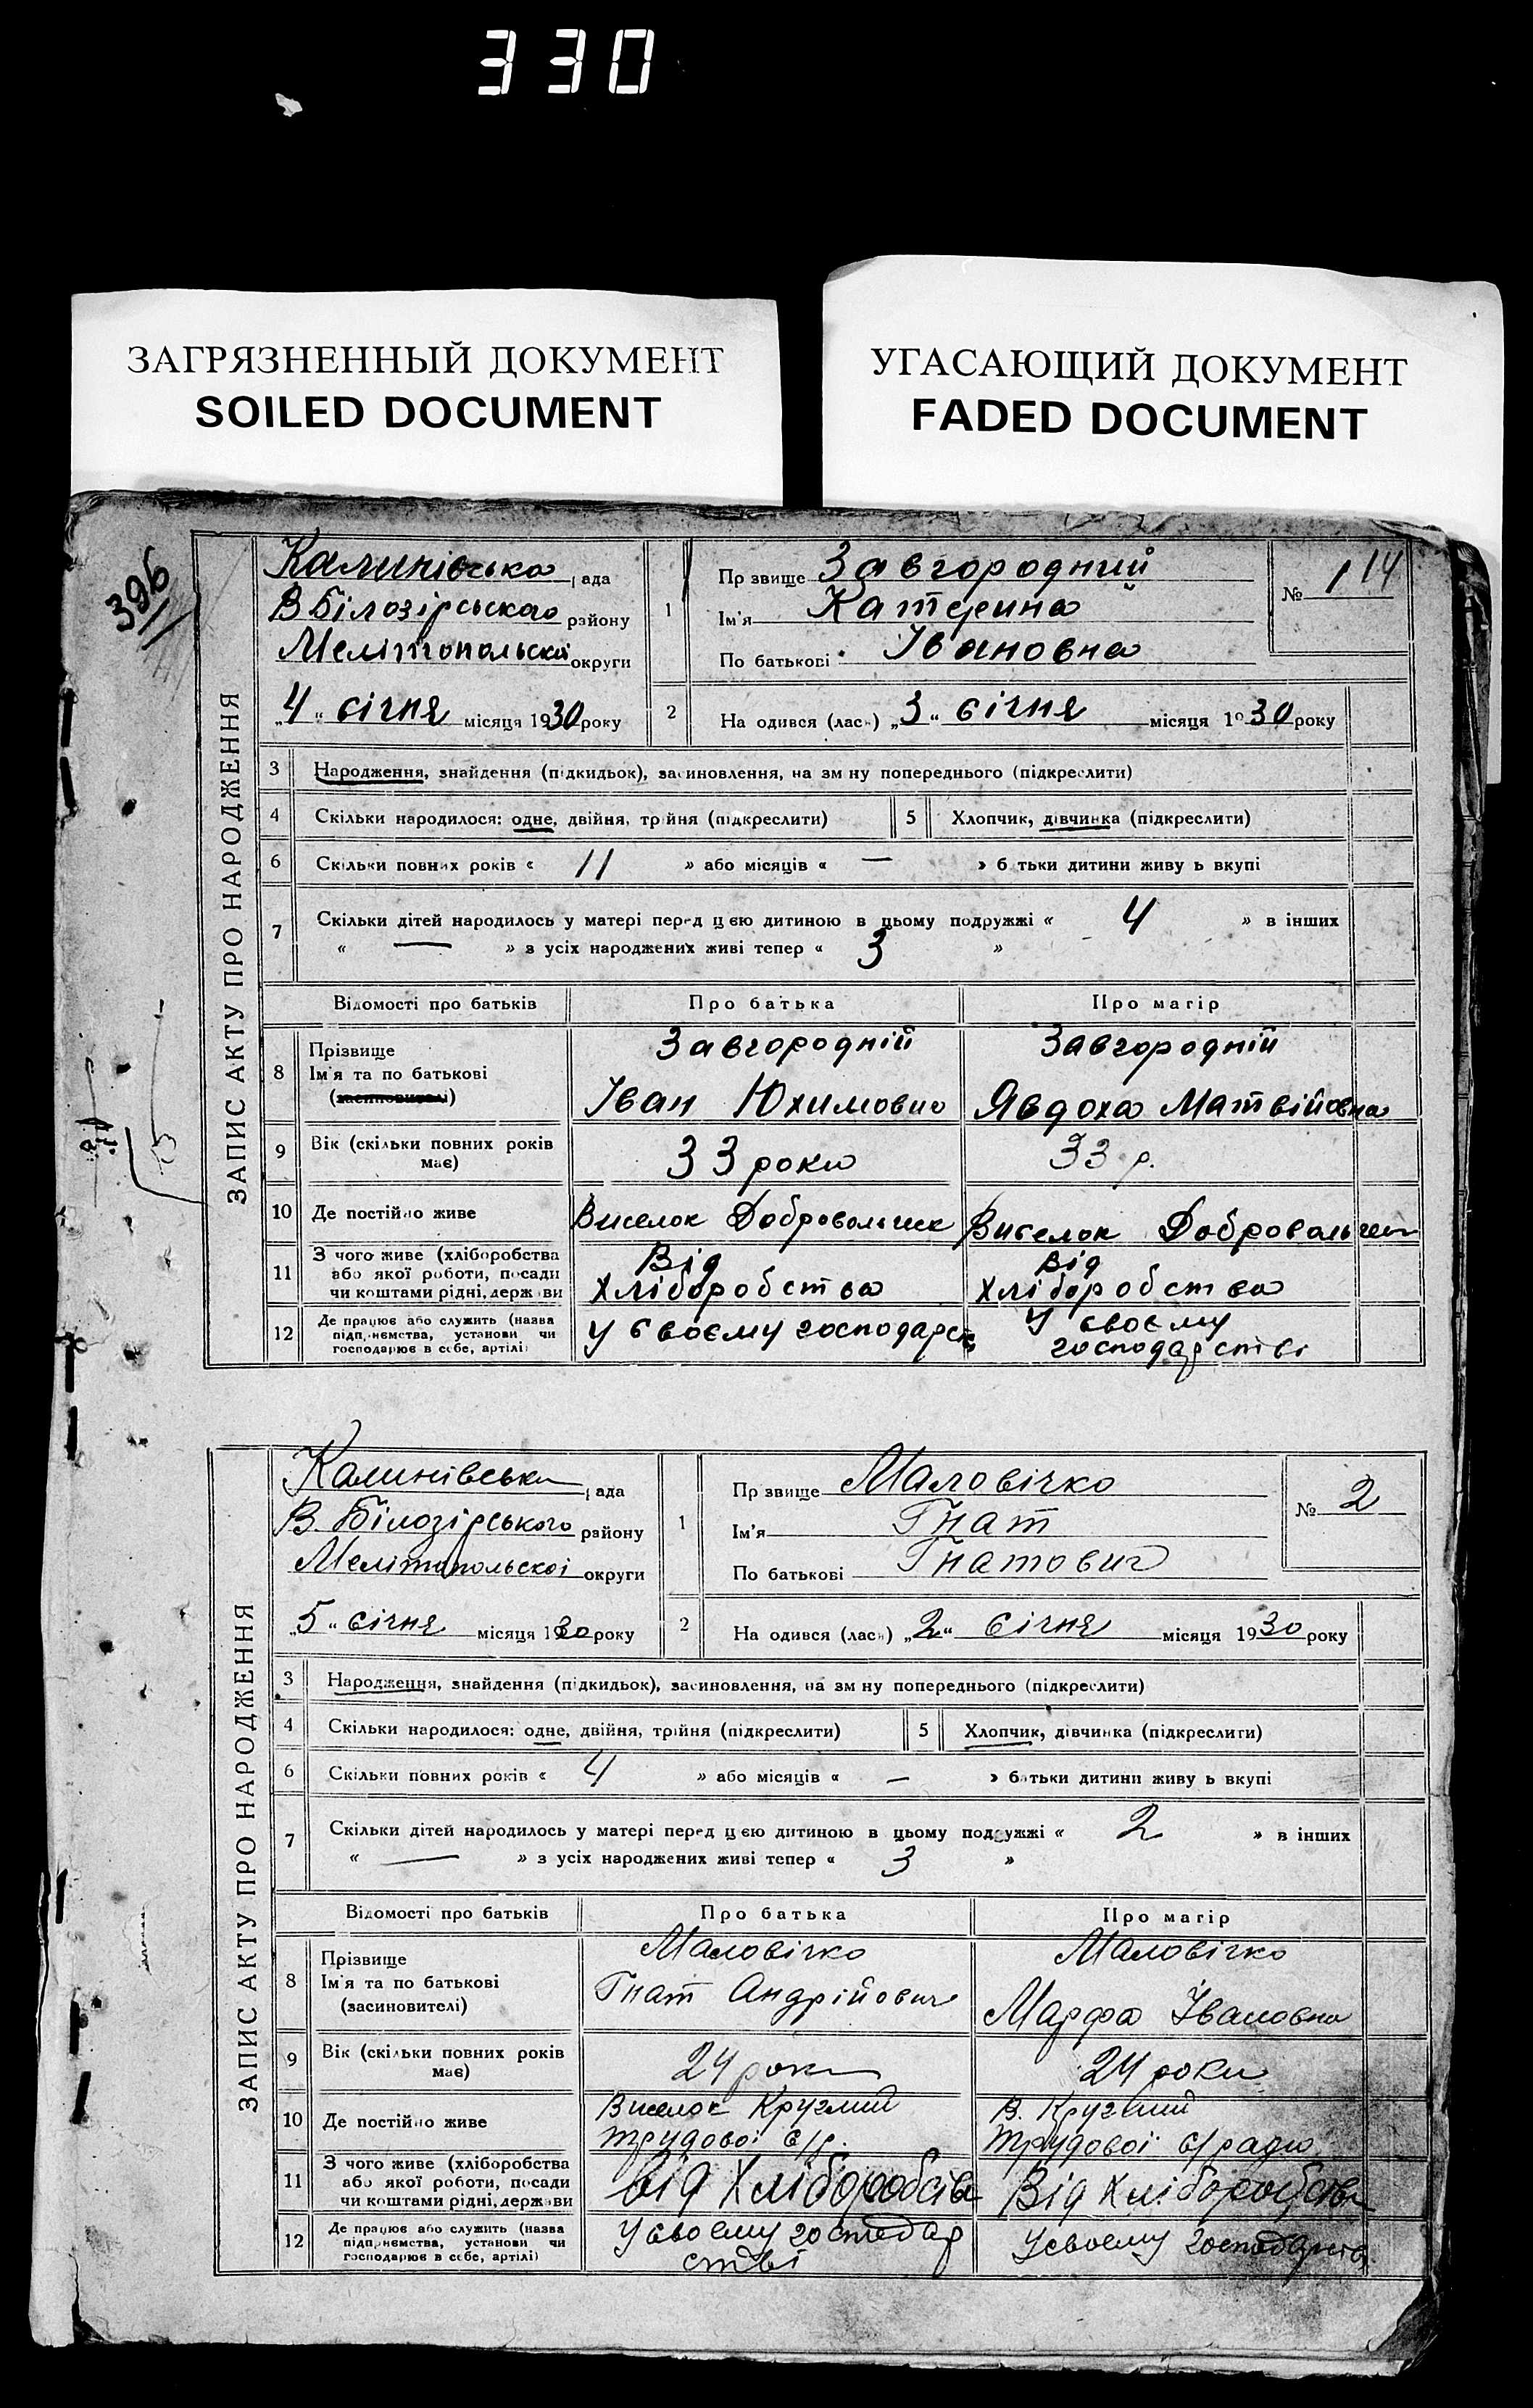 330
ЗАГРЯЗНЕННЫЙ ДОКУМЕНТ
SOILED DOCUMENT
УГАСАЮЩИЙ ДОКУМЕНТ
FADED DOCUMENT
396
ЗАПИС АКТУ ПРО НАРОДЖЕННЯ
Калинівська рада
В Білозірського району
Мелітопольскої округи
„4“ січня місяця 1930 року
1 Прізвище Завгородний
Ім'я Катерина
По батькові Івановна
№ 1 14
2 Народився (лась) „3“ січня місяця 1930 року
3 Народження, знайдення (підкидьок), засиновлення, на зміну попереднього (підкреслити)
4 Скільки народилося: одне, двійня, трійня (підкреслити) 5 Хлопчик, дівчинка (підкреслити)
6 Скільки повних років « 11 » або місяців « — » батьки дитини живуть вкупі
7 Скільки дітей народилось у матері перед цією дитиною в цьому подружжі « 4 » в інших
« — » з усіх народжених живі тепер « 3 »
Відомості про батьків Про батька Про матір
8 Прізвище Завгородній Завгородній
Ім'я та по батькові
(засиновителі) Іван Юхимович Явдоха Матвійовна
9 Вік (скільки повних років має) 33 роки 33 р.
10 Де постійно живе Виселок Добровольчек Виселок Добровольчек
11 З чого живе (хліборобства Від Від
або якої роботи, посади Хліборобства Хліборобства
чи коштами рідні, держави
12 Де працює або служить (назва У своєму господарств У своєму
підприємства, установи чи господарстві
господарює в себе, артілі)
ЗАПИС АКТУ ПРО НАРОДЖЕННЯ
Калинівська рада
В. Білозірського району
Мелітопольскої округи
„5“ січня місяця 1930 року
1 Прізвище Маловічко
Ім'я Гнат
По батькові Гнатович
№ 2
2 Народився (лась) „2“ січня місяця 1930 року
3 Народження, знайдення (підкидьок), засиновлення, на зміну попереднього (підкреслити)
4 Скільки народилося: одне, двійня, трійня (підкреслити) 5 Хлопчик, дівчинка (підкреслити)
6 Скільки повних років « 4 » або місяців « — » батьки дитини живуть вкупі
7 Скільки дітей народилось у матері перед цією дитиною в цьому подружжі « 2 » в інших
« — » з усіх народжених живі тепер « 3 »
Відомості про батьків Про батька Про матір
8 Прізвище Маловічко Маловічко
Ім'я та по батькові Гнат Андрійович Марфа Івановна
(засиновителі)
9 Вік (скільки повних років має) 24 роки 24 роки
10 Де постійно живе Виселок Круглий В. Круглий
трудової с/р. трудової с/ради
11 З чого живе (хліборобства Від Хліборобств Від Хліборобства
або якої роботи, посади
чи коштами рідні, держави
12 Де працює або служить (назва У своєму господар У своєму господарств
підприємства, установи чи стві
господарює в себе, артілі)